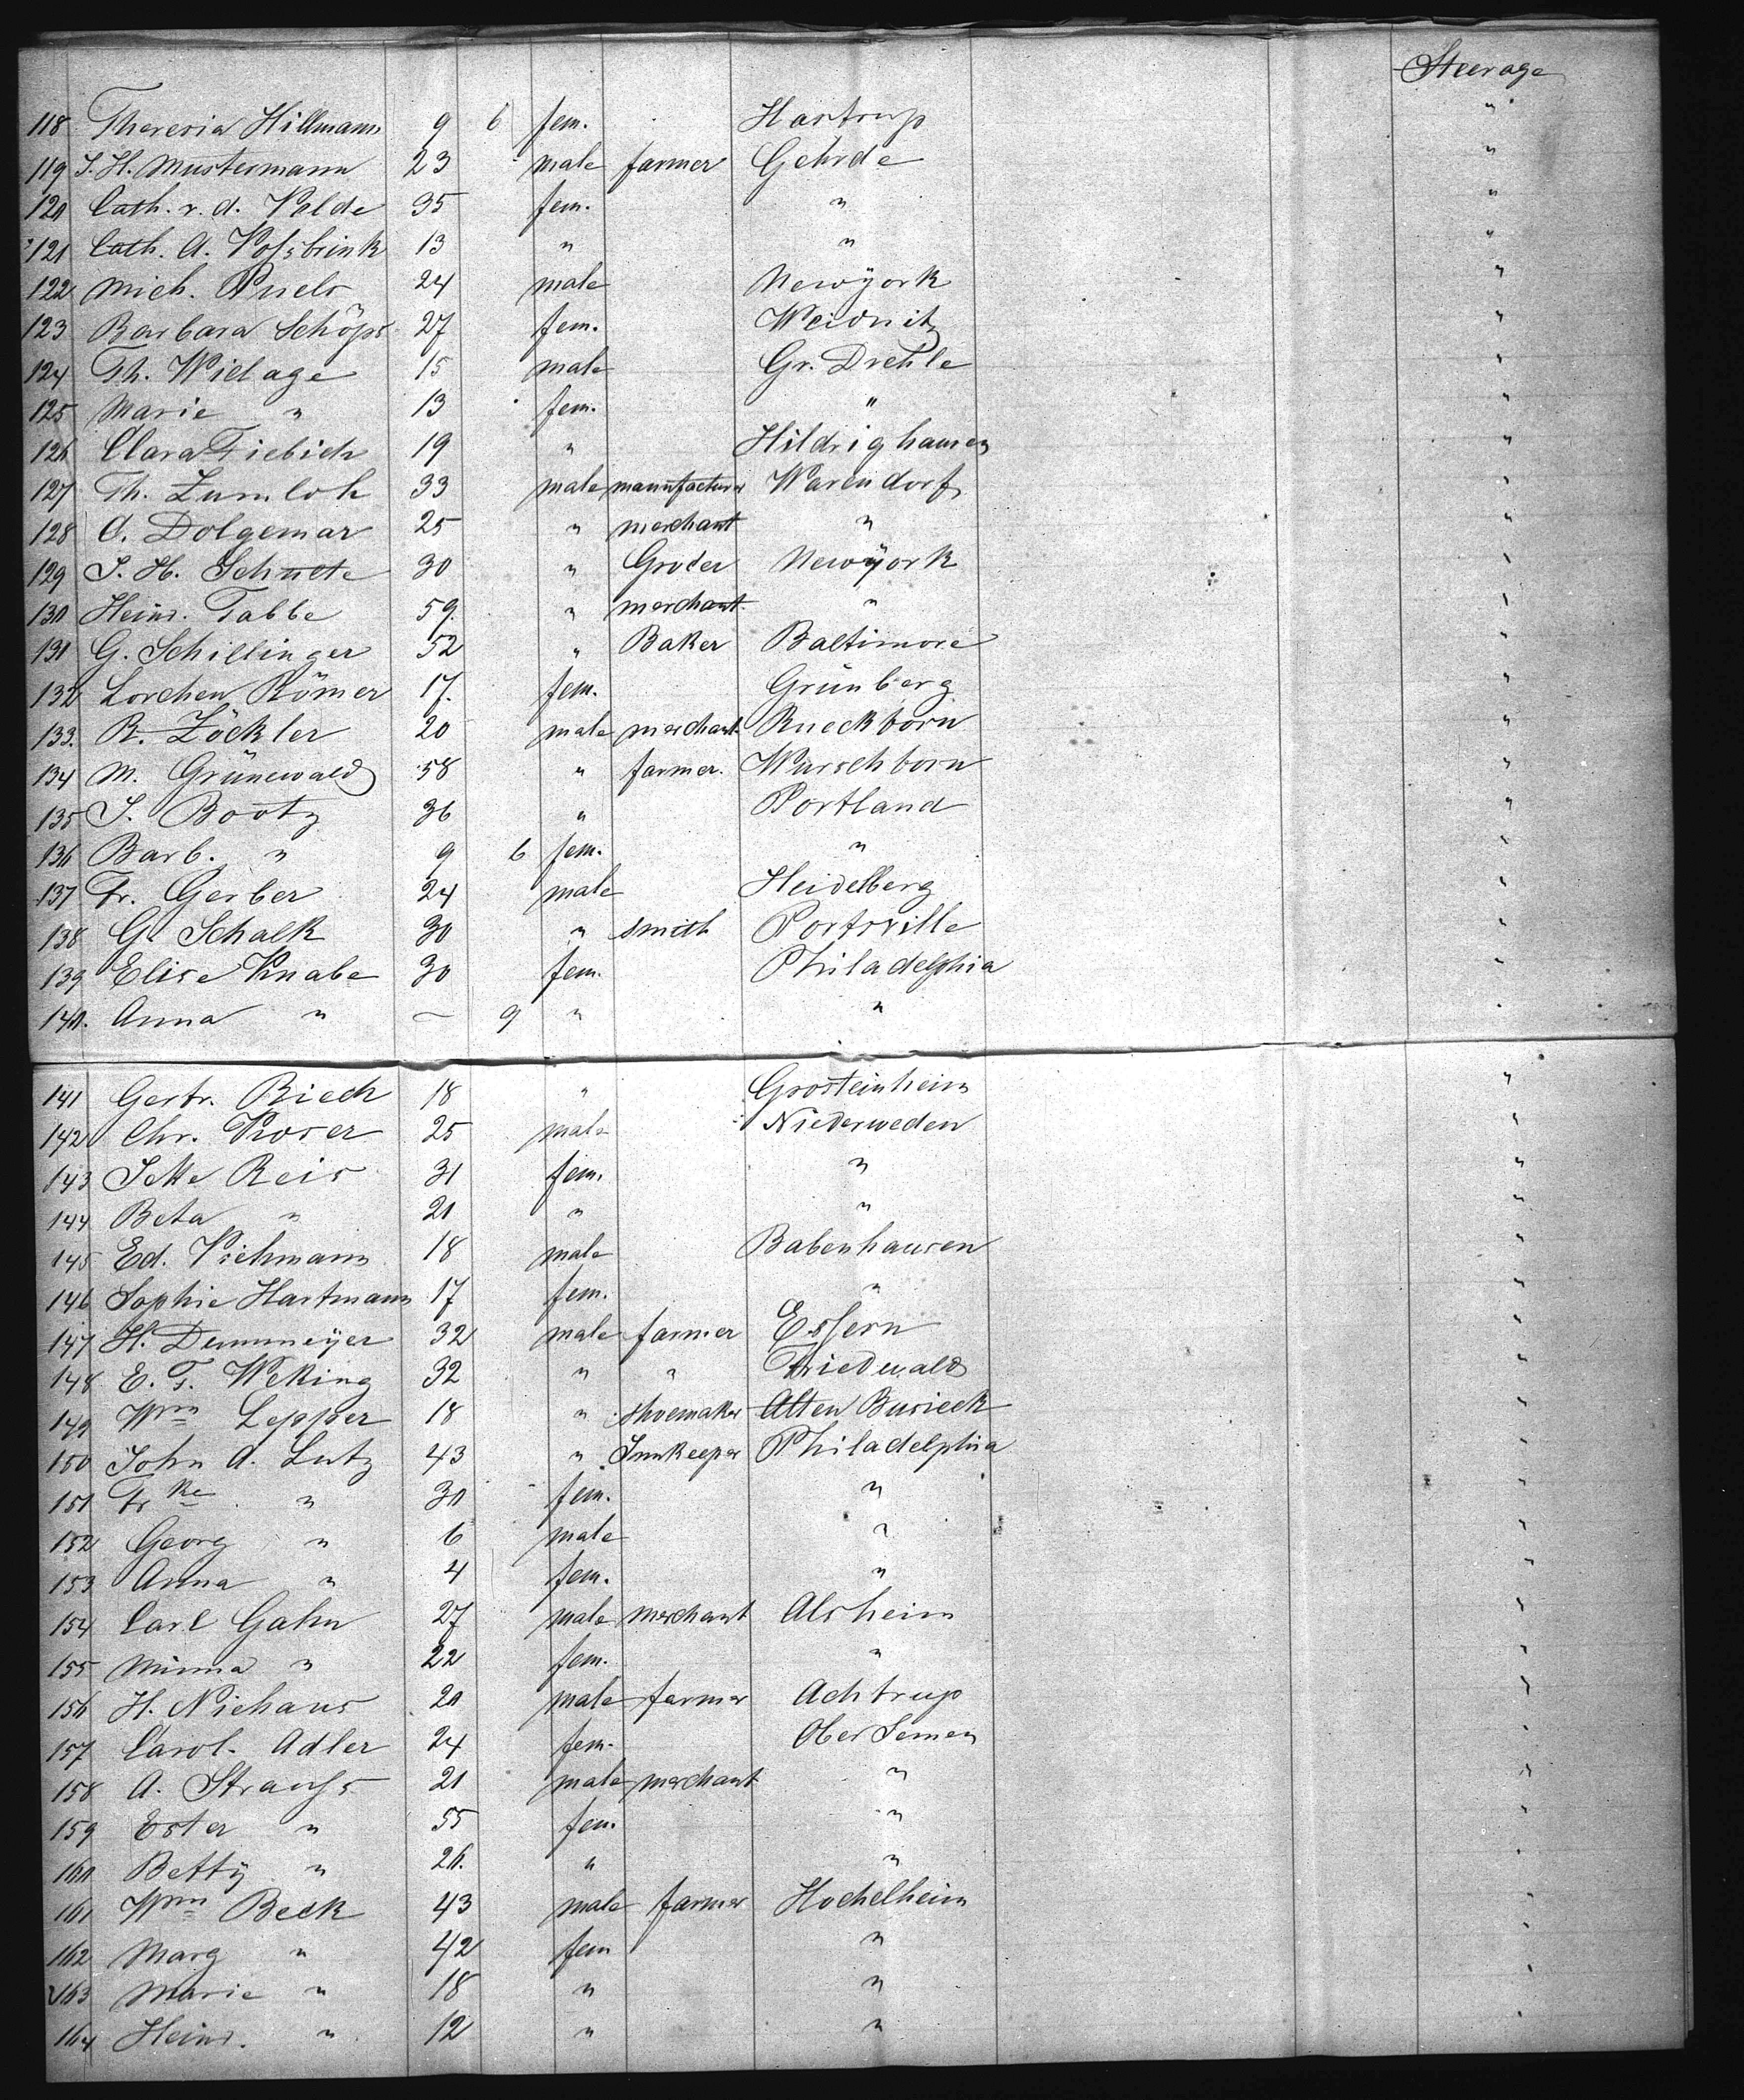 Steerage
118 Theresia Hillmann 9 6 fem. Hastrup "
119 J. H. Mustermann 23 male farmer Gehrde "
120 Cath. v. d. Velde 35 fem. " "
121 Cath. A. Vossbrink 13 " " "
122 Mich. 24 male Newÿork "
123 Barbara Schöps 27 fem. Weidnitz "
124 Th. Wielage 15 male Gr. Drehle "
125 Marie " 13 fem. " "
126 Clara Fiebich 19 " Hildrighausen "
127 Th. Zumloh 33 male manufacturer Warendorf "
128 C. Dolgemar 25 " merchant " "
129 J. H. Schuete 30 " Grocer Newÿork "
130 Heinr. Tabbe 59. " merchant " "
131 G. Schillinger 52 " Baker Baltimore "
132 Lorchen Römer 17. fem. Grünberg "
133. R. Zöckler 20 male merchant Rueckborn "
134 M. Grünewald 58 " farmer. Warschborn "
135 J. Bootz 36 " Portland "
136 Barb. " 9 6 fem. " "
137 Fr. Gerber 24 male Heidelberg "
138 G. Schalk 30 " smith Portsville "
139 Elise Knabe 30 fem. Philadelphia "
140. Anna " — 9 " " "
141 Gertr. Rieck 18 " Grosteinheim "
142 Chr. Moser 25 male Niederweden "
143 Jette Reis 31 fem. " "
144 Beta " 21 " " "
145 Ed. Viehmann 18 male Babenhausen "
146 Sophie Hartmann 17 fem. " "
147 H. Dummeÿer 32 male farmer Essern "
148 E. F. Weking 32 " " Friedewald "
149 Wm Lepper 18 " shoemaker Alten Busieck "
150 John A. Lutz 43 " Innkeeper Philadelphia "
151 Frke " 30 fem. " "
152 Georg " 6 male " "
153 Anna " 4 fem. " "
154 Carl Gahn 27 male merchant Alsheim "
155 Minna " 22 fem. " "
156 H. Niehaus 20 male farmer Achtrup "
157 Carol. Adler 24 fem. Ober Semen "
158 A. Strauss 21 male merchant " "
159 Ester " 55 fem. " "
160 Bettÿ " 26. " " "
161 Wm Beck 43 male farmer Hochelheim "
162 Marg " 42 fem " "
163 Marie " 18 " " "
164 Heinr. " 12 " " "